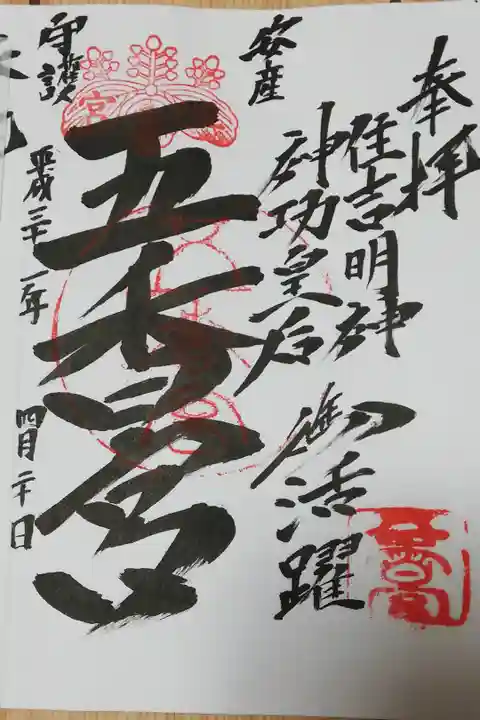 奉拝
住吉明神
神功皇后
御活躍
安産
守護
五香宮
平成三十一年
四月二十日